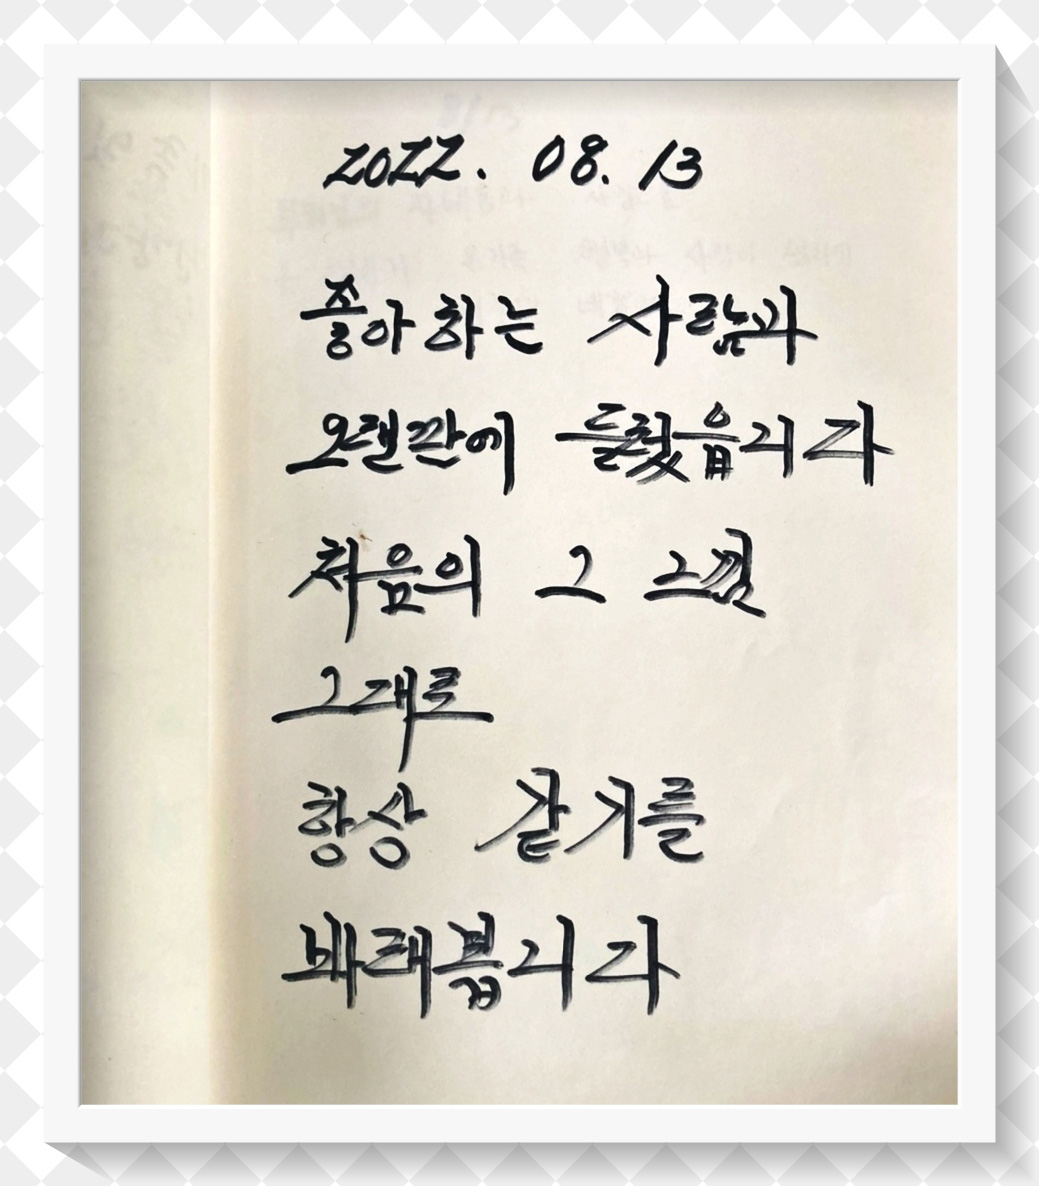 2022. 08. 13
좋아하는 사람과
오랜만에 들렀읍니다
처음의 그 느낌
그대로
항상 같기를
바래봅니다